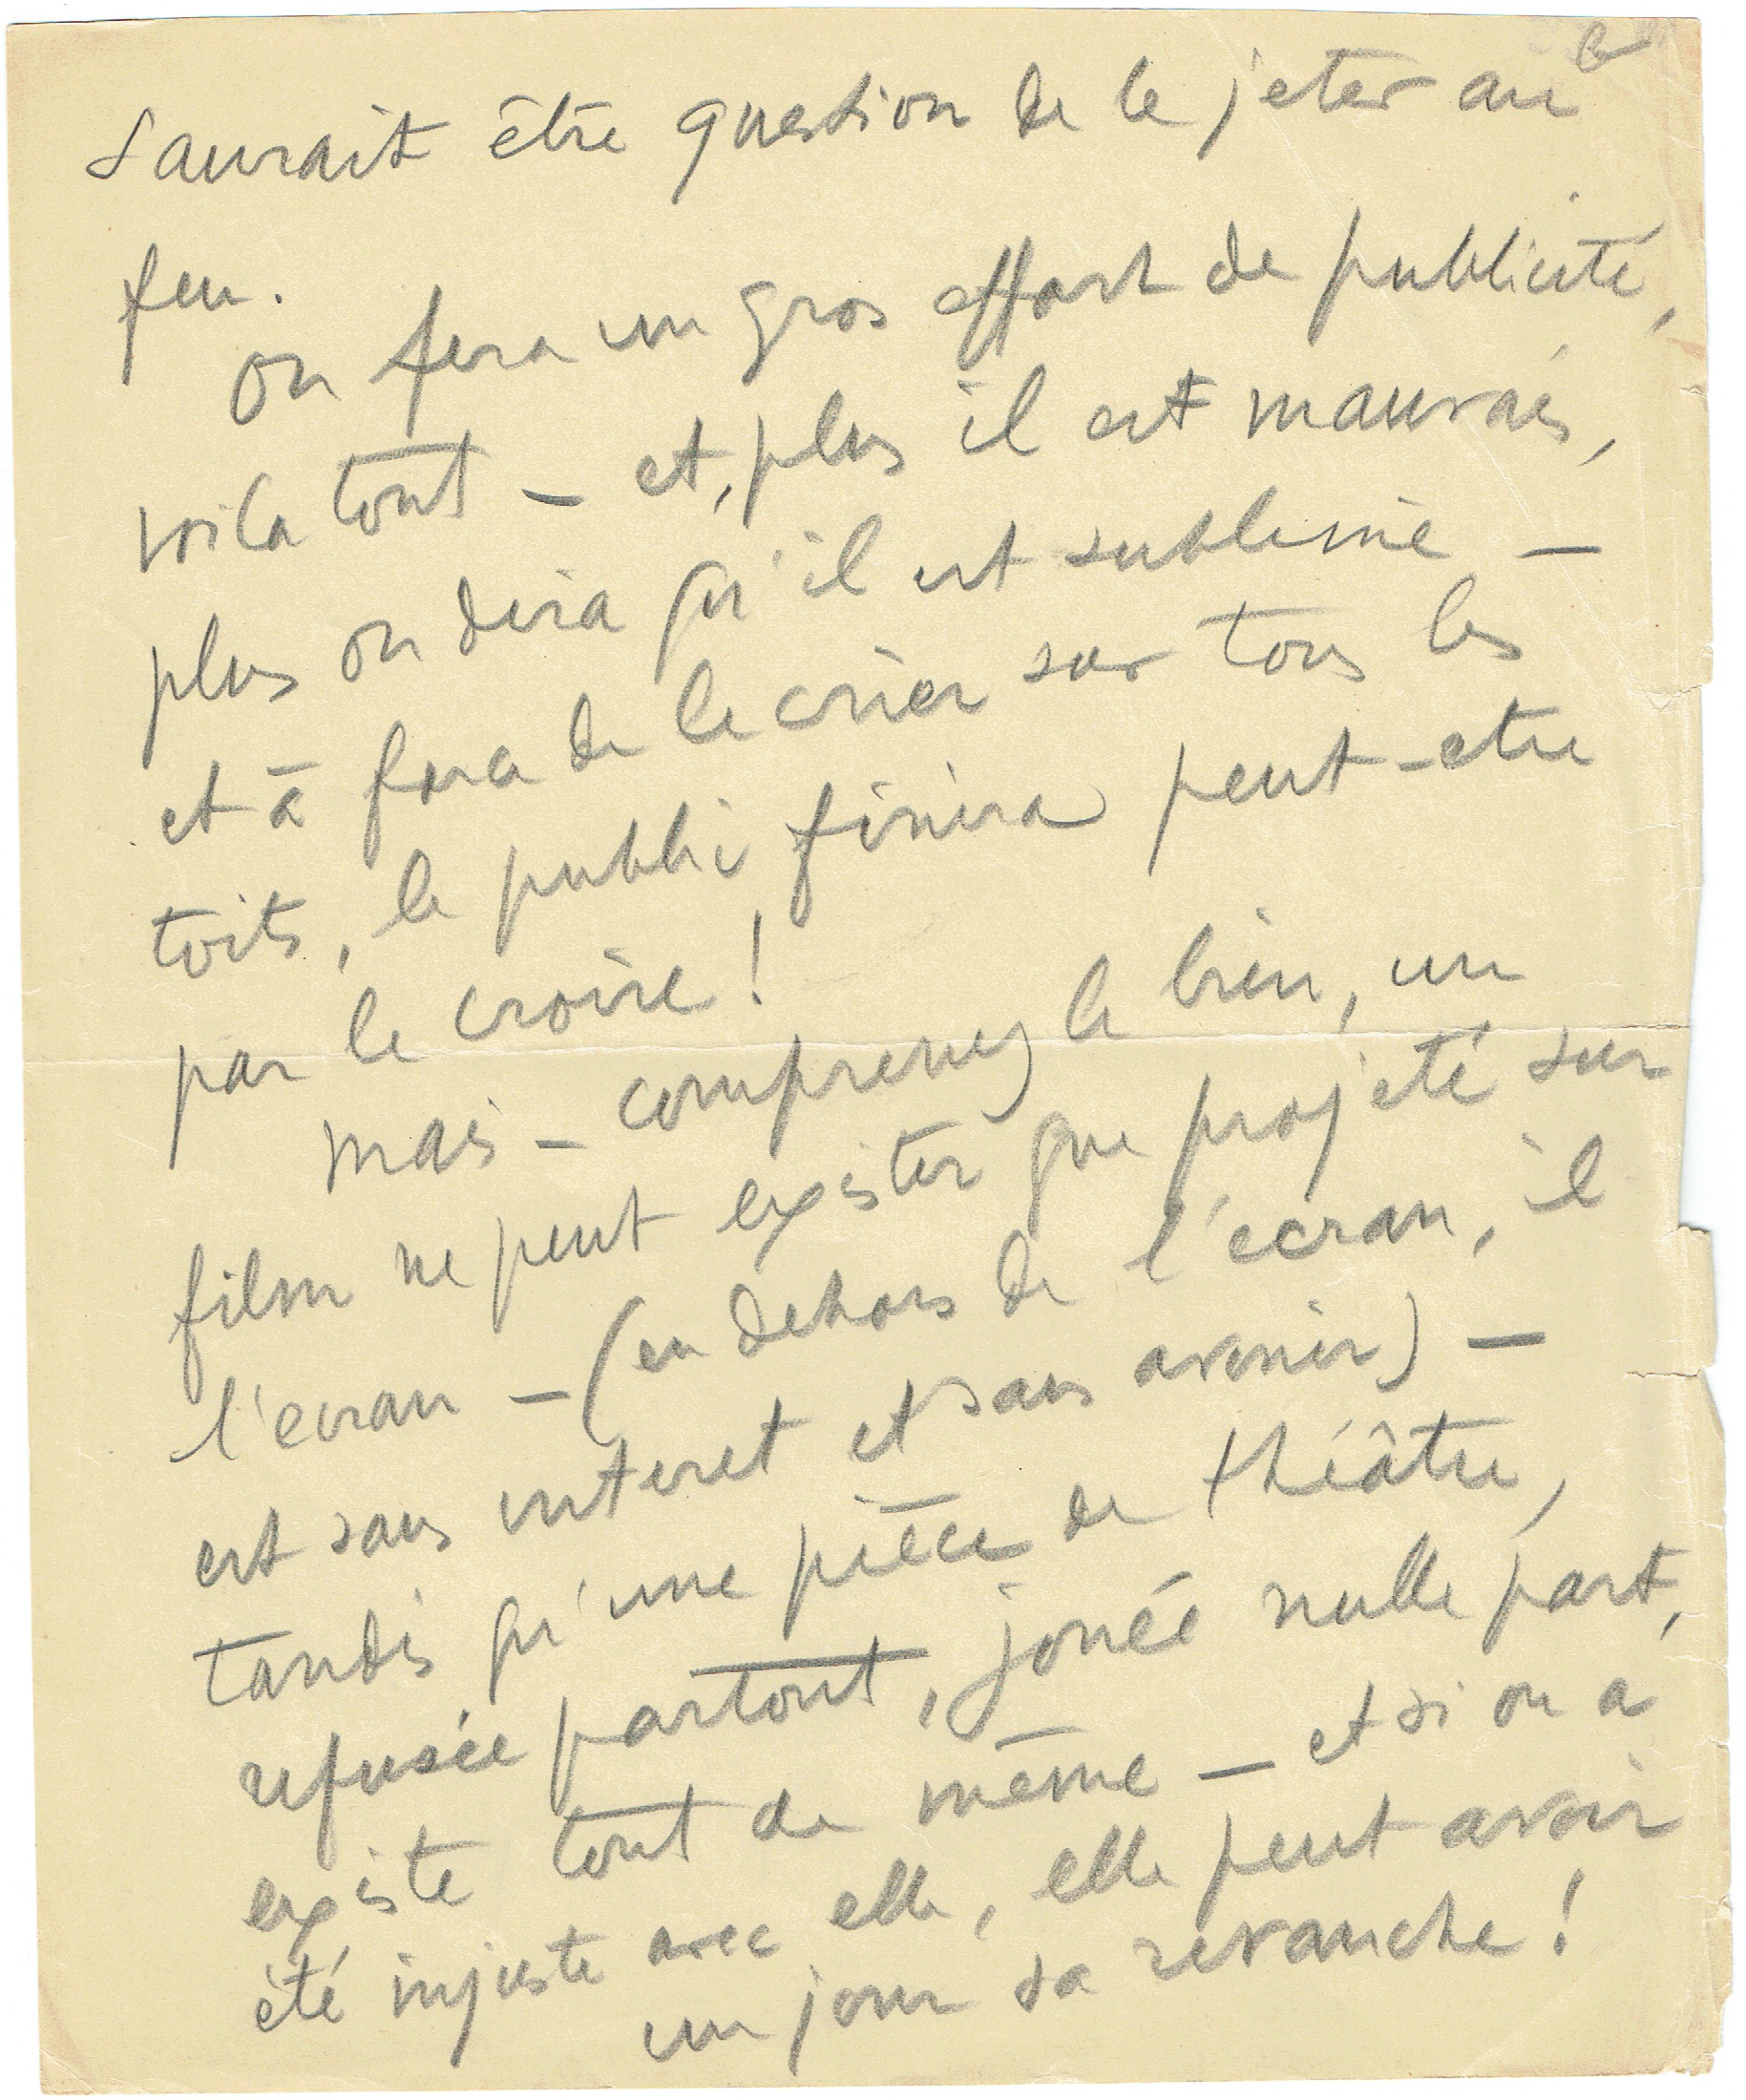 6
saurait être question de le jeter au
feu.
on fera un gros effort de publicité,
voilà tout – et, plus il est mauvais,
plus on dira qu'il est sublime –
et à force de le crier sur tous les
toits, le public finira peut-etre
par le croire !
mais – comprenez le bien, un
film ne peut exister que projeté sur
l'ecran – (en dehors de l'écran, il
est sans interet et sans avenir) –
tandis qu'une pièce de théâtre,
refusée partout, jouée nulle part,
existe tout de même – et si on a
été injuste avec elle, elle peut avoir
un jour sa revanche !